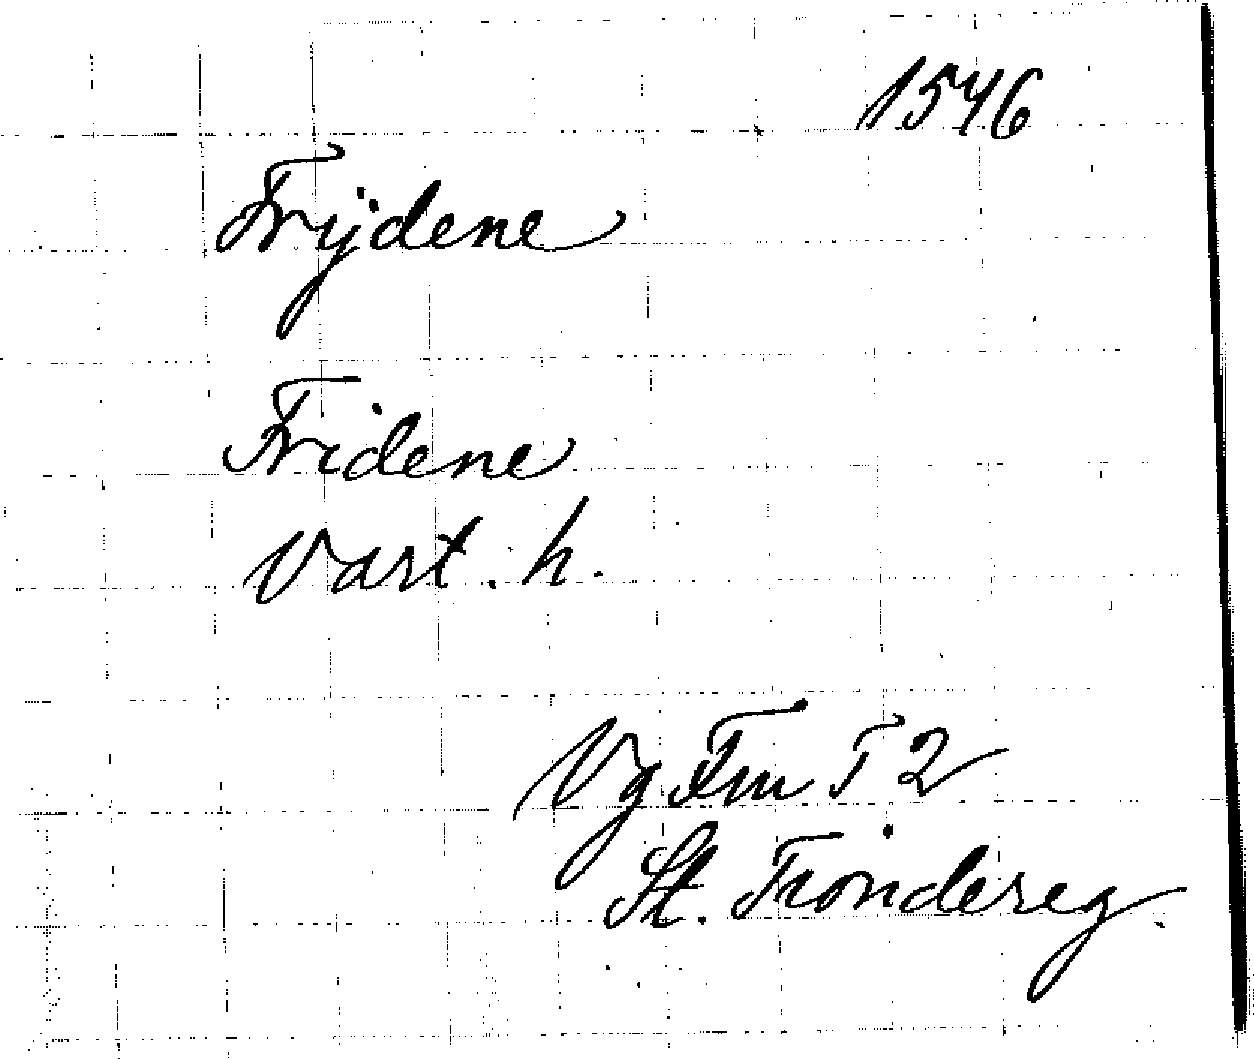 1546
Frijdene
Fridene
Vart. h.
Vg T 2
St. Tiondereg.